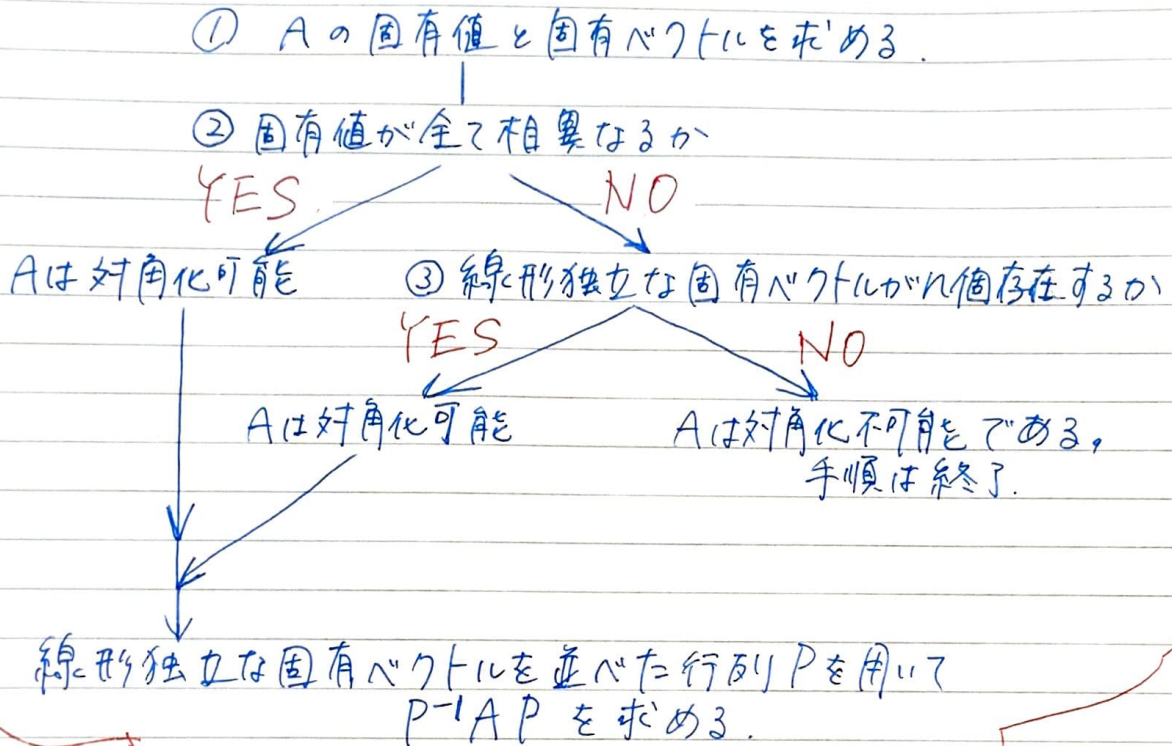 ① Aの固有値と固有ベクトルを求める.
② 固有値が全て相異なるか
YES
NO
Aは対角化可能
③ 線形独立な固有ベクトルがn個存在するか
YES
NO
Aは対角化可能
Aは対角化不可能である。
手順は終了.
線形独立な固有ベクトルを並べた行列Pを用いて
P⁻¹AP を求める.